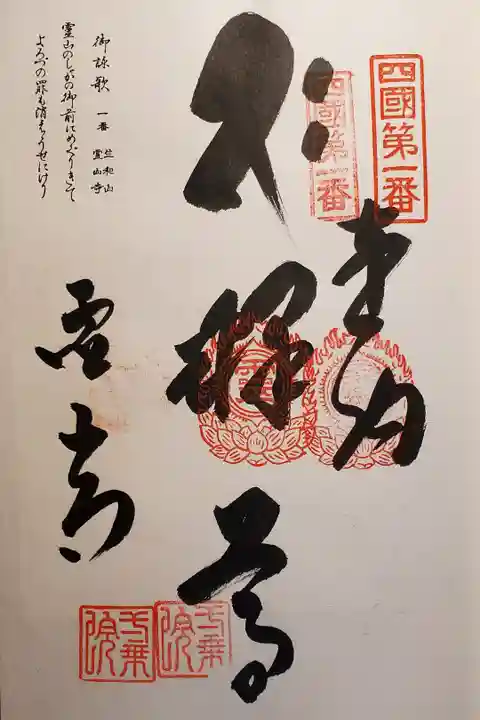 四國第一番
四國第一番
奉納
釋尊
霊山寺
御詠歌 一番 竺和山 霊山寺
霊山のしやかの御前にめぐりきて
よろづの罪も消えうせにけり